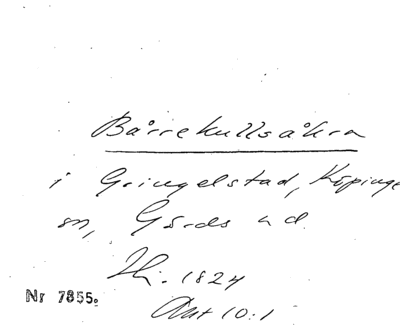 Bårrekullsåkra
i Gringelstad, Köpinge
sn, Gärds hd.
Hi. 1824
Akt 10:1
Nr 7855.